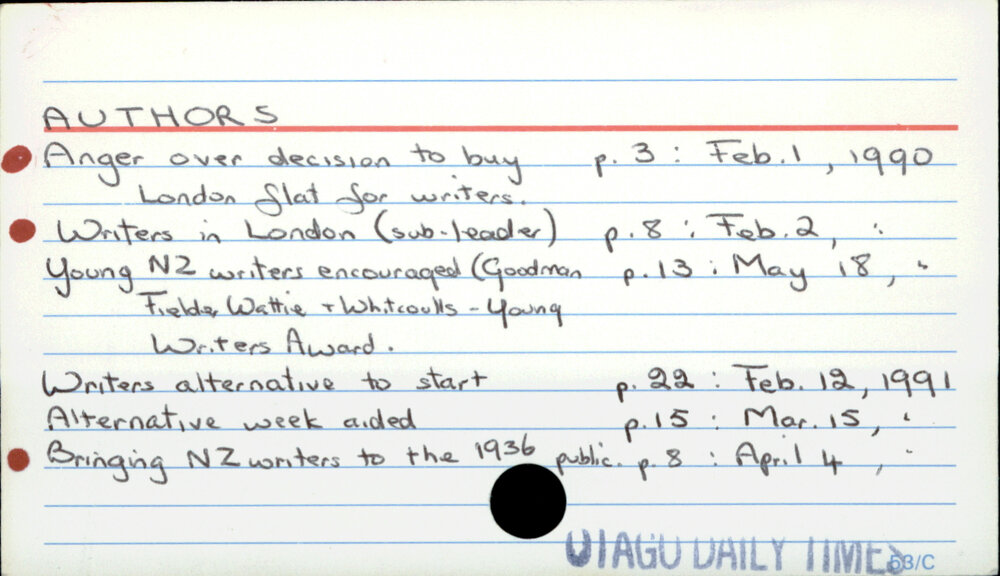 AUTHORS
Anger over decision to buy p. 3 : Feb. 1, 1990
London flat for writers.
Writers in London (sub-leader) p. 8 : Feb. 2, "
Young NZ writers encouraged (Goodman p. 13 : May 18, "
Fielder, Wattie + Whitcoulls - Young
Writers Award.
Writers alternative to start p. 22 : Feb. 12, 1991
Alternative week aided p. 15 : Mar. 15, "
Bringing NZ writers to the 1936 public. p. 8 : April 4, "
OTAGO DAILY TIMES
53/C